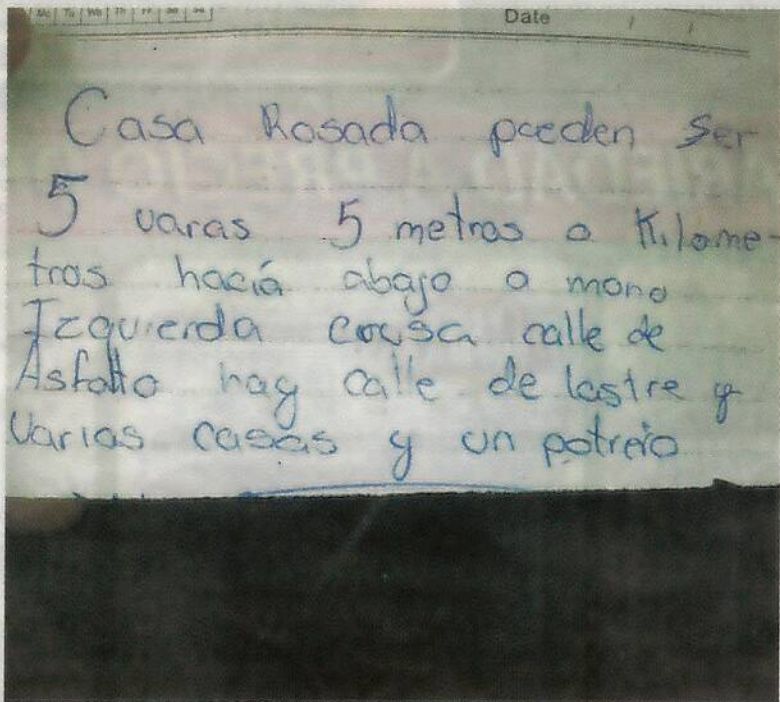 Mo Tu We Th Fr Sa Su
Date / /
Casa Rosada pueden Ser
5 varas 5 metros o Kilome-
tros haciá abajo a mano
Izquierda casa calle de
Asfalto hay calle de lastre y
Varias casas y un potrero